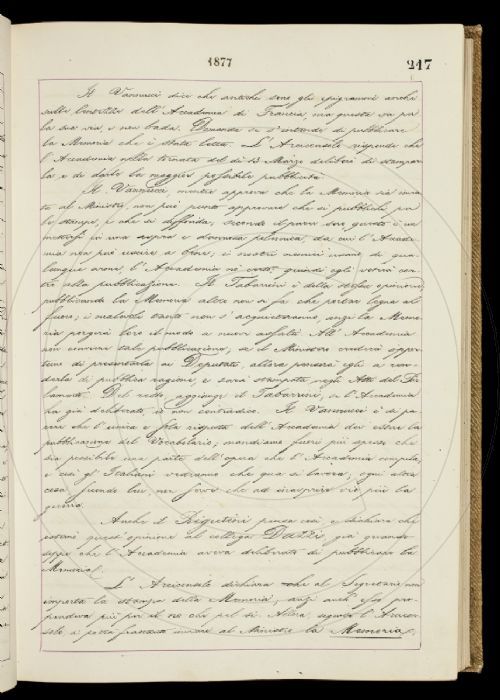 1877
217
Il Vannucci dice che antiche sono gli epigrammi anche
sulle lentezze dell'Accademia di Francia, ma questa va per
la sua via e non bada. Domanda se s'intende di pubblicare
la Memoria che è stata letta. L'Arciconsolo risponde che
l'Accademia nella tornata del dì 13 Marzo deliberò di stampar
la e di darle la maggior possibile pubblicità.
Il Vannucci mentre approva che la Memoria sia invia
ta al Ministro, non può punto approvare che si pubblichi per
le stampe, e che si diffonda; secondo il parer suo questo è un
mettersi in una aspra e dannata polemica, da cui l'Accade
mia non può uscire a bene; i nostri nemici usano di qua
lunque arma, l'Accademia no certo; quindi egli voterà con
tro alla pubblicazione. Il Tabarrini è della stessa opinione,
pubblicando la Memoria altro non si fa che portar legna al
fuoco; i malevoli tanto non s'acquieteranno, anzi la Memo
ria porgerà loro il modo a nuovi assalti. All'Accademia
non conviene tale pubblicazione, se il Ministro crederà oppor
tuno di presentarla ai Deputati, allora penserà egli a ren
derla di pubblica ragione, e sarà stampata negli Atti del Par
lamento. Del resto, aggiunge il Tabarrini, se l'Accademia
ha già deliberato, io non contraddico. Il Vannucci è di pa
rere che l'unica e sola risposta dell'Accademia dev'essere la
pubblicazione del Vocabolario; mandiamo fuori più spesso che
sia possibile una parte dell'opera che l'Accademia compila,
e così gl'Italiani vedranno che qua si lavora; ogni altra
cosa facendo noi non serve che ad inasprire vie più la
guerra.
Anche il Rigutini pensa così, e dichiara che
esternò questa opinione al collega Dazzi già quando
seppe che l'Accademia aveva deliberato di pubblicare la
Memoria.
L'Arciconsolo dichiara che al Segretario non
importa la stampa della Memoria, anzi anch'esso pro
pendeva più per il no che pel sì. Allora, seguita l'Arcicon
solo, si potrà frattanto inviare al Ministro la Memoria,